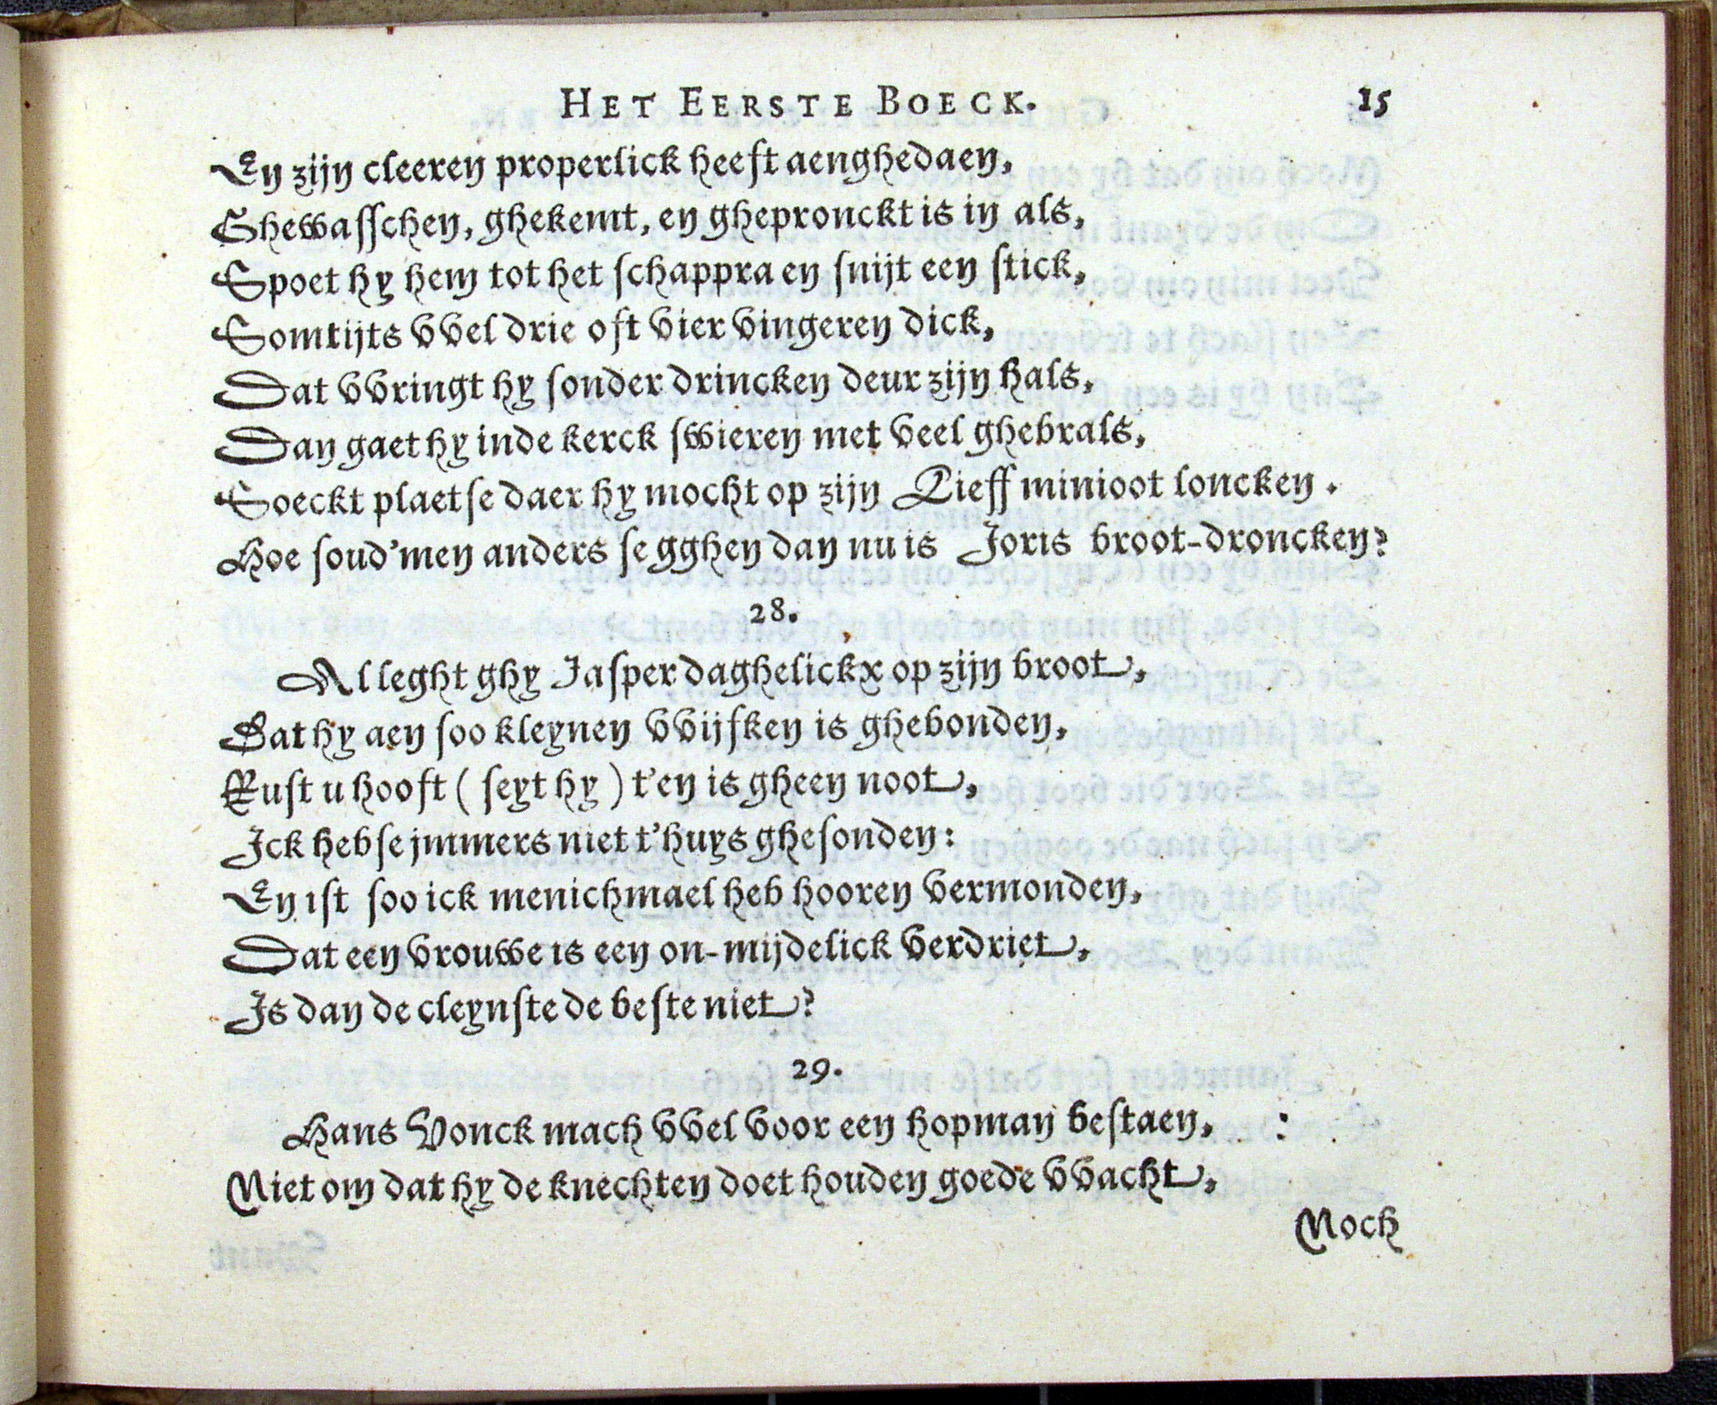 HET EERSTE BOECK. 15
En zijn cleeren properlick heeft aenghedaen,
Ghewasschen, ghekemt, en ghepronckt is in als,
Spoet hy hem tot het schappra en snijt een stick,
Somtijts vvel drie oft vier vingeren dick,
Dat vvringt hy sonder drincken deur zijn hals,
Dan gaet hy inde kerck swieren met veel ghebrals,
Soeckt plaetse daer hy mocht op zijn Lieff minioot loncken.
Hoe soud'men anders segghen dan nu is Joris broot-droncken?
28.
Al leght ghy Jasper daghelickx op zijn broot,
Dat hy aen soo kleynen vvijfken is ghebonden,
Rust u hooft (seyt hy) t'en is gheen noot,
Ick hebse jmmers niet t'huys ghesonden:
En ist soo ick menichmael heb hooren vermonden,
Dat een vrouwe is een on-mijdelick verdriet,
Is dan de cleynste de beste niet?
29.
Hans Vonck mach vvel voor een hopman bestaen,
Niet om dat hy de knechten doet houden goede vvacht,
Noch
Want